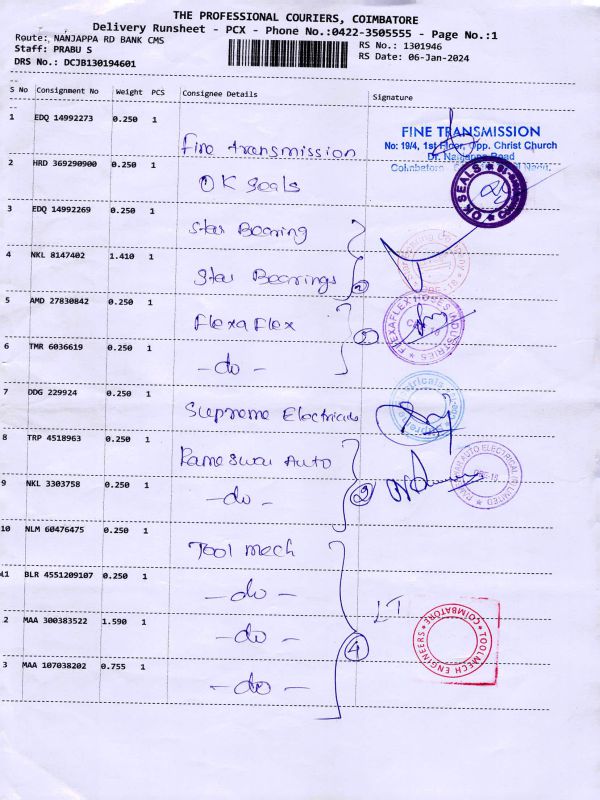 THE PROFESSIONAL COURIERS, COIMBATORE
Delivery Runsheet - PCX - Phone No.:0422-3505555 - Page No.:1
Route: NANJAPPA RD BANK CMS
RS No.: 1301946
Staff: PRABU S
RS Date: 06-Jan-2024
DRS No.: DCJB130194601
S No Consignment No Weight PCS Consignee Details Signature
1 EDQ 14992273 0.250 1 Fine transmission
FINE TRANSMISSION
No: 19/4, 1st Floor, Opp. Christ Church
Dr. Nanjappa Road
Coimbatore
2 HRD 369290900 0.250 1 OK Seals
OK SEALS
3 EDQ 14992269 0.250 1 Star Bearing
4 NKL 8147402 1.410 1 Star Bearings 2
CBE-18
5 AMD 27830842 0.250 1 Flexa Flex 2
FLEXAFLEX HOSES INDUSTRIES
6 TMR 6036619 0.250 1 -do-
7 DDG 229924 0.250 1 Supreme Electricals
8 TRP 4518963 0.250 1 Rameswar Auto
AUTO ELECTRICAL LIMITED
CBE-18
9 NKL 3303758 0.250 1 -do- 2
10 NLM 60476475 0.250 1 Tool mech
11 BLR 4551209107 0.250 1 -do-
2 MAA 300383522 1.590 1 -do- 4
TOOLMECH ENGINEERS
COIMBATORE
3 MAA 107038202 0.755 1 -do-